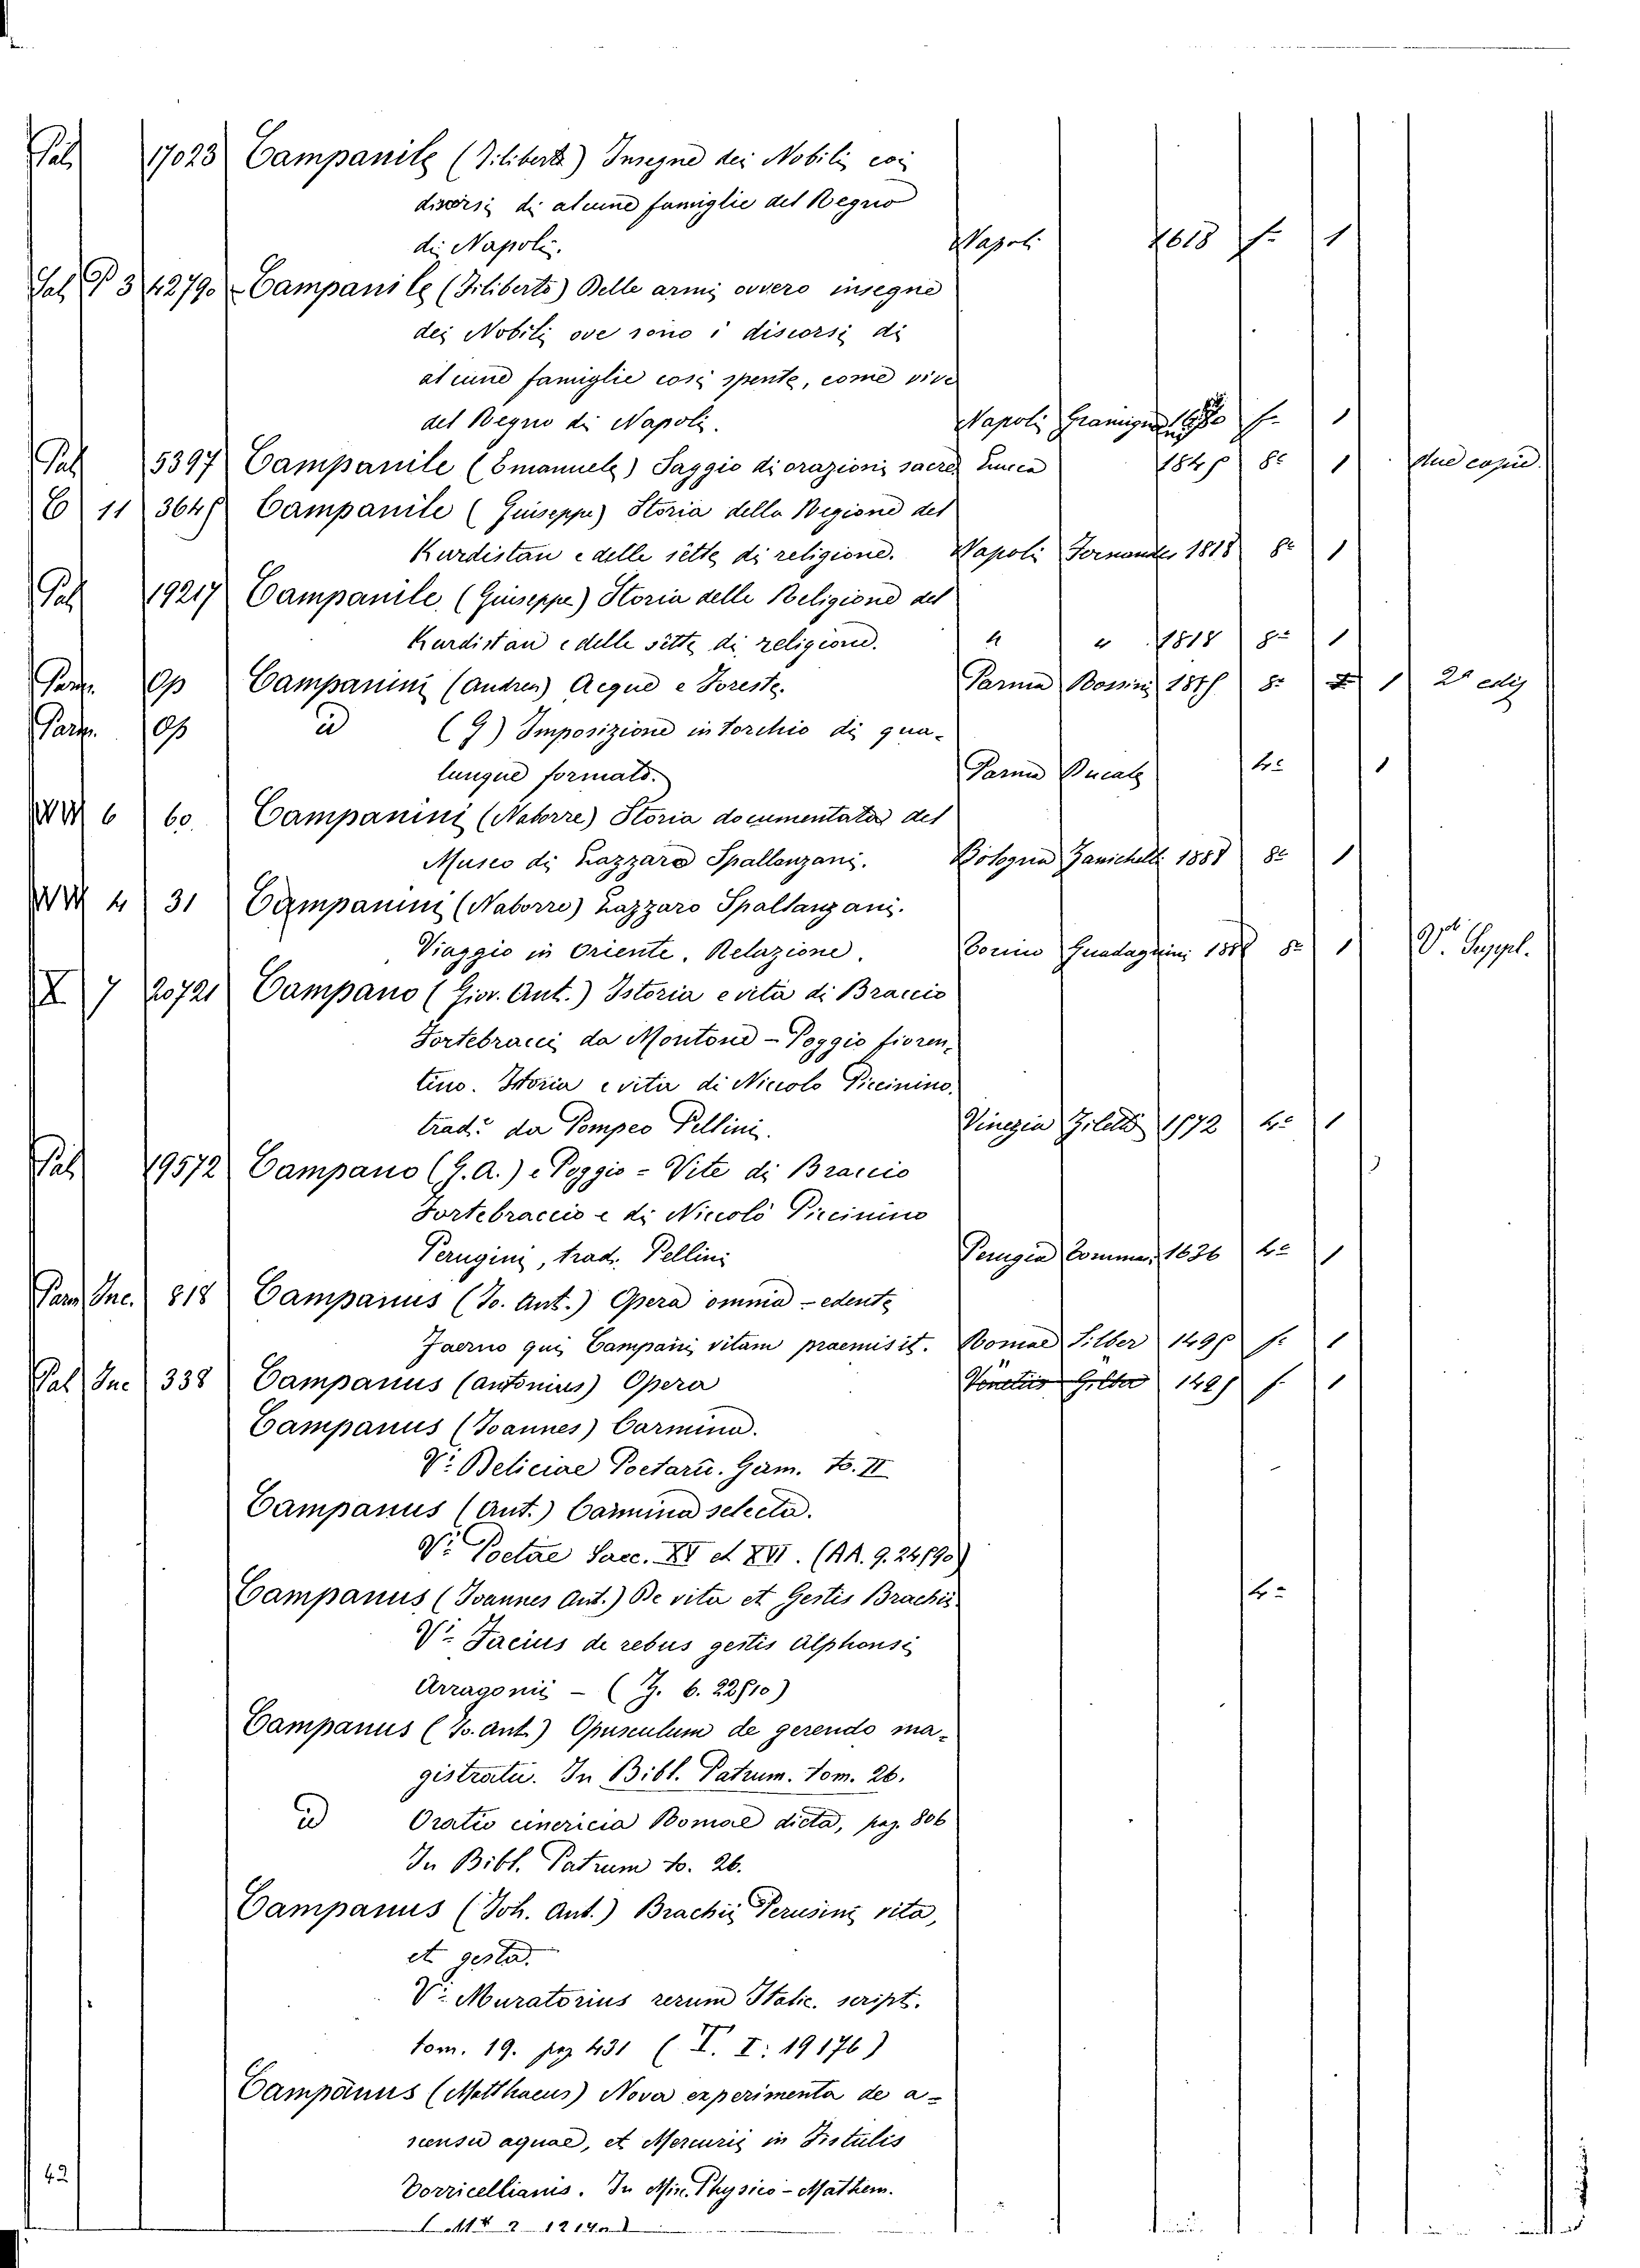 Pal 17023 Campanile (Filiberto) Insegne dei Nobili, coi
discorsi di alcune famiglie del Regno
di Napoli. Napoli 1618 f° 1
Sal. P 3 4279° Campanile (Filiberto) Delle armi ovvero insegne
dei Nobili ove sono i discorsi di
alcune famiglie così spente, come vive
del Regno di Napoli. Napoli f° 1
Pal 5397 Campanile (Emanuele) Saggio di orazioni sacre Lucca 8° 1 due copie.
C 11 364 Campanile (Guiseppe) Storia della Regione del
Kurdistan e delle sètte di religione. Napoli Fernandes 1818 8° 1
Pal 19217 Campanile (Guiseppe) Storia delle Religione del
Kurdistan e delle sètte di religione. " " 1818 8° 1
Parm. Op Campanini (Andrea) Acque e Foreste. Parma Rossini 8° 1 2ª ediz
Parm. Op id (G) Imposizione in torchio di qua-
lunque formato. Parma Ducale 4° 1
WW 6 60. Campanini (Naborre) Storia documentata del
Museo di Lazzaro Spallanzani. Bologna Zanichelli 1888 8° 1
WW 4 31 Campanini (Naborre) Lazzaro Spallanzani.
Viaggio in Oriente. Relazione. Torino Guadagnini 8° 1 V. Suppl.
X 7 20721 Campano (Giov. Ant.) Istoria e vita di Braccio
Fortebracci da Montone - Poggio fioren-
tino. Istoria e vita di Niccolo Piccinino,
trad. da Pompeo Pellini. Vinezia Ziletti 1572 4° 1
Pal 19572 Campano (G. A.) e Poggio - Vite di Braccio
Fortebraccio e di Niccolò Piccinino
Perugini, trad. Pellini Perugia Tommas. 1636 4° 1
Parm Inc. 818 Campanus (Jo. Ant.) Opera omnia - edente
Faerno qui Campani vitam praemisit. Romae Silber 1495 f° 1
Pal Inc 338 Campanus (Antonius) Opera f° 1
Campanus (Joannes) Carmina.
V. Deliciae Poetarũ. Germ. to. II
Campanus (Ant.) Carmina selecta.
V. Poetae Saec. XV et XVI. (AA. 9. 24190)
Campanus (Joannes Ant.) De vita et Gestis Brachii 4°
V. Facius de rebus gestis Alphonsi
Arragonii - (Z. 6. 22510)
Campanus (Jo. Ant.) Opusculum de gerendo ma-
gistratu. In Bibl. Patrum. tom. 26.
id Oratio cinericia Romae dicta, pag. 806
In Bibl. Patrum to. 26.
Campanus (Joh. Ant.) Brachii Perusini vita,
et gesta.
V. Muratorius rerum Italic. script.
tom. 19. pag 431 (I. I. 19176)
Campanus (Matthaeus) Nova experimenta de a-
scensu aquae, et Mercurii in Fistulis
Torricellianis. In Misc. Physico-Mathem.
42